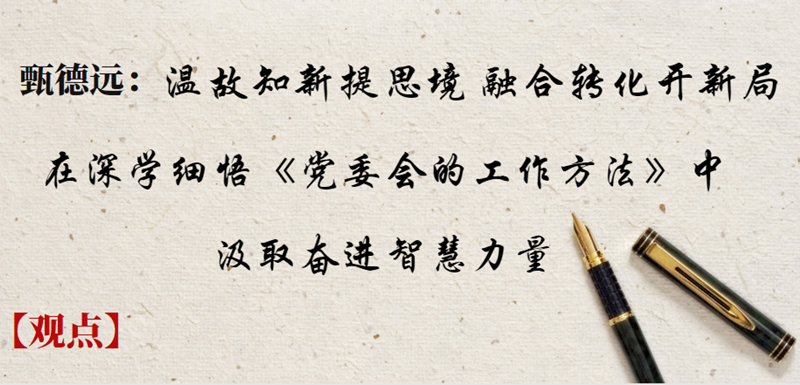 甄德远：温故知新提思境 融合转化开新局
在深学细悟《党委会的工作方法》中
汲取奋进智慧力量
【观点】